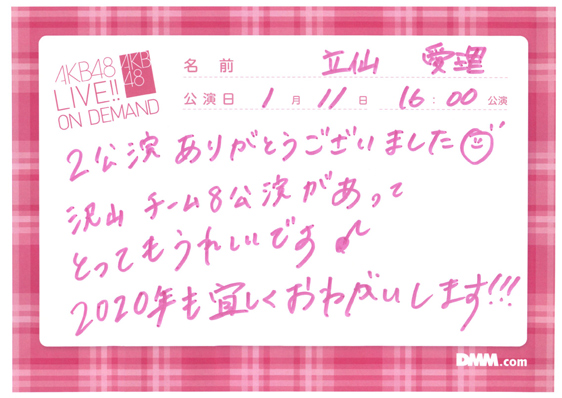 AKB48
LIVE!!
ON DEMAND
AKB
48
名前 立仙 愛理
公演日 1月11日 16:00公演
2公演ありがとうございました
沢山チーム8公演があって
とってもうれしいです♪
2020年も宜しくおねがいします!!!
DMM.com